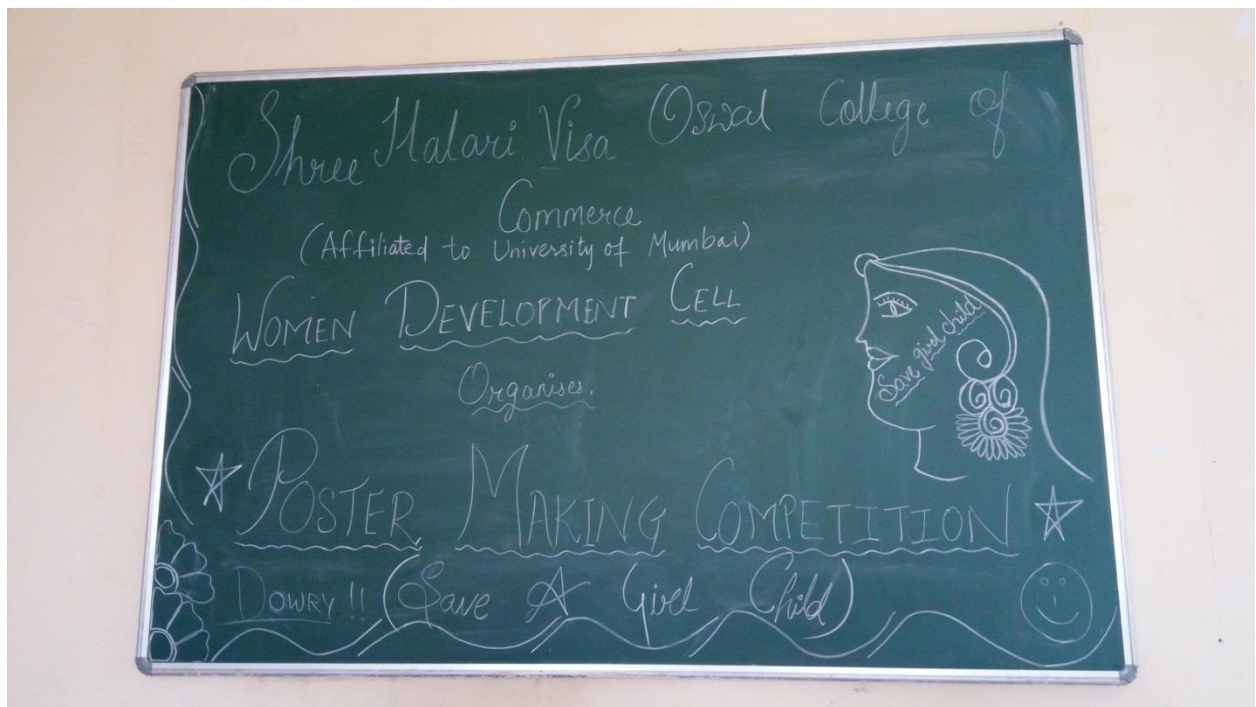 Shree Halari Visa Oswal College of
Commerce
(Affiliated to University of Mumbai)
WOMEN DEVELOPMENT CELL
Organises.
Save girl child
POSTER MAKING COMPETITION
DOWRY !! (Save A Girl Child)